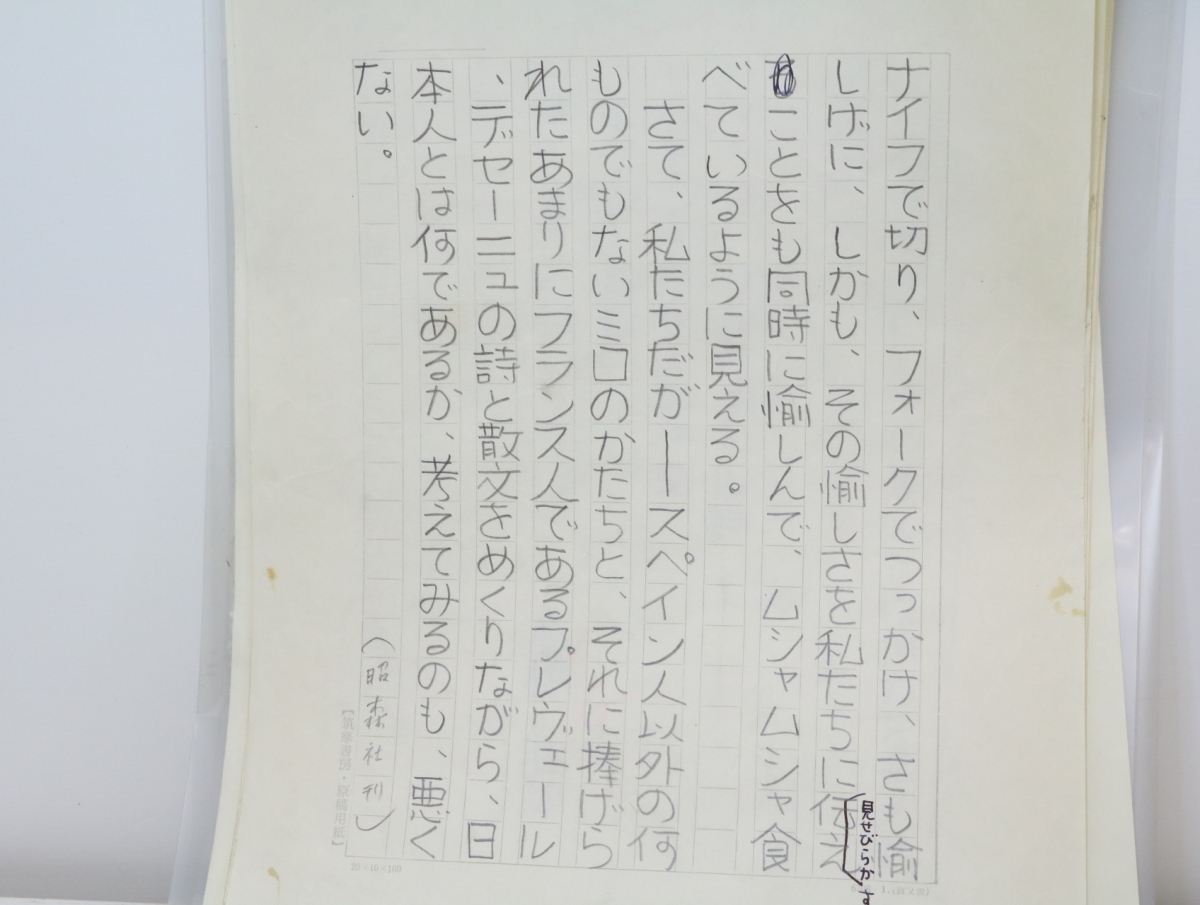 ナイフで切り、フォークでつっかけ、さも愉
しげに、しかも、その愉しさを私たちに伝え
見せびらかす
ことをも同時に愉しんで、ムシャムシャ食
べているように見える。
さて、私たちだが――スペイン人以外の何
ものでもないミロのかたちと、それに捧げら
れたあまりにフランス人であるプレヴェール
、デセーニュの詩と散文をめくりながら、日
本人とは何であるか、考えてみるのも、悪く
ない。
(昭森社刊)
【筑摩書房・原稿用紙】
20×10×100